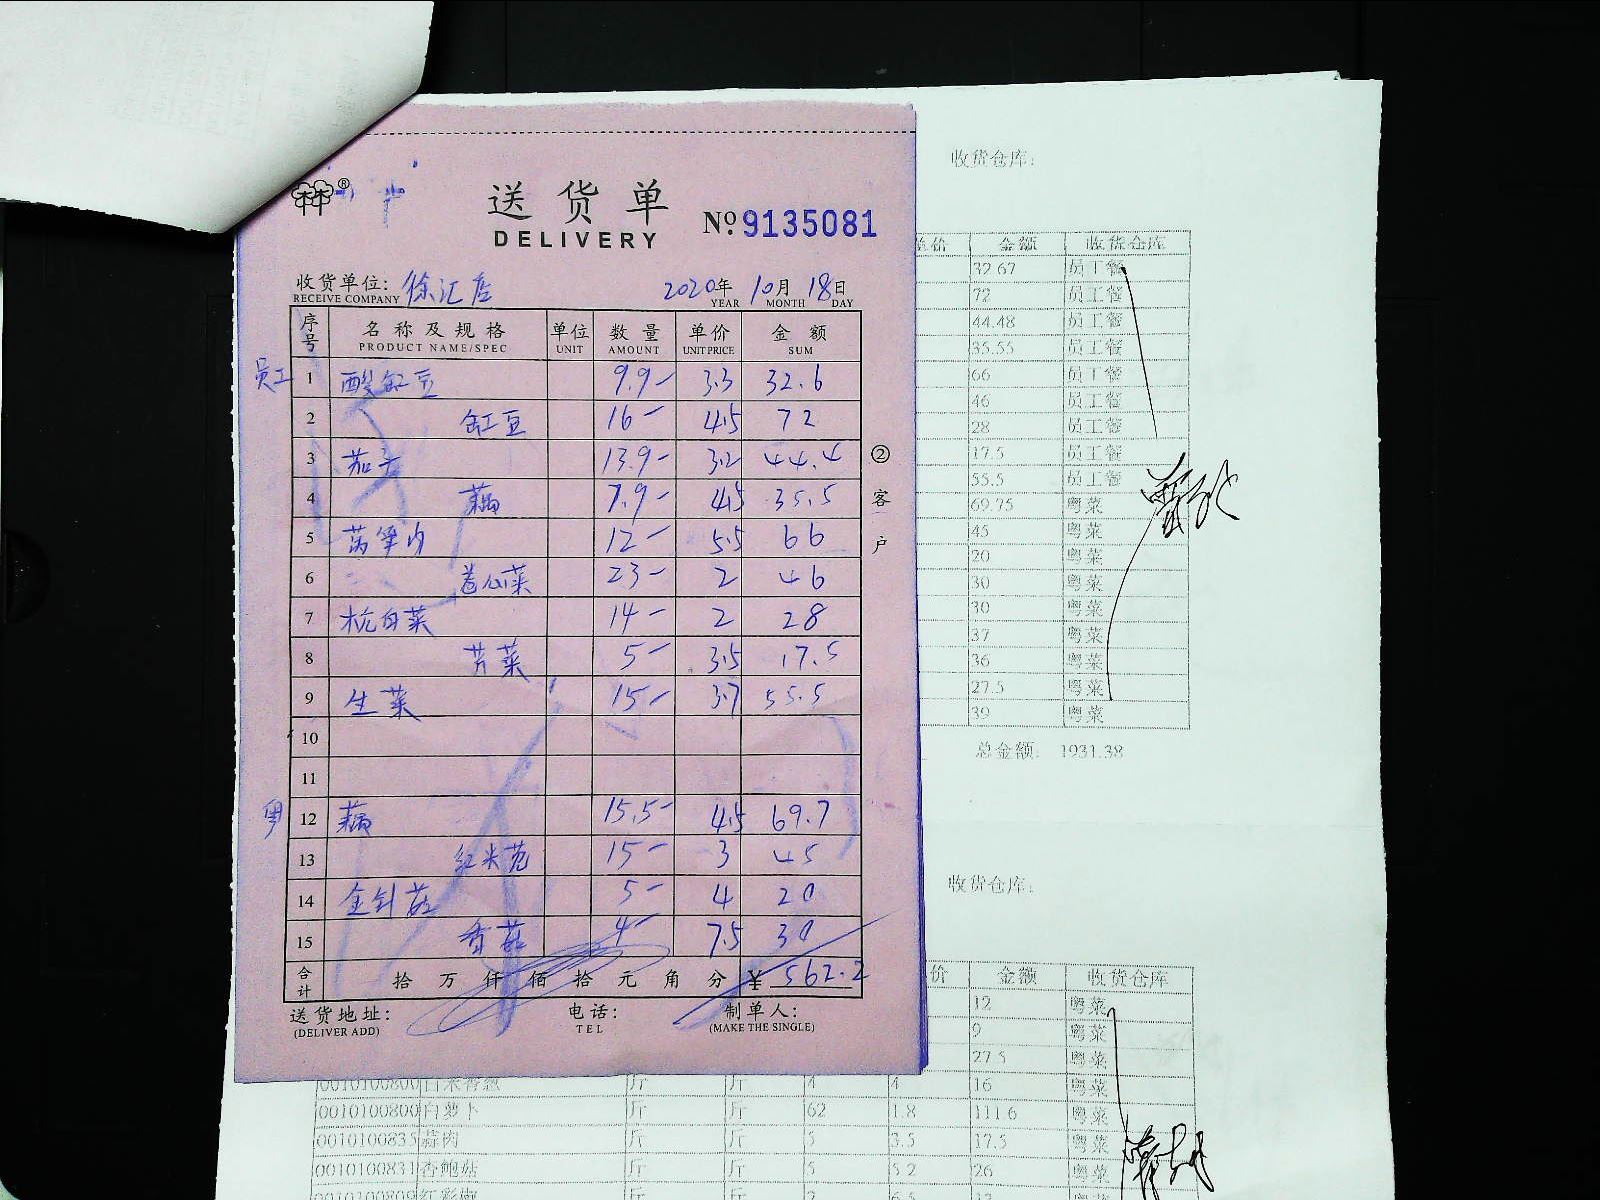 送货单
DELIVERY
No. 9135081
收货单位: 徐汇店 2020年 10月 18日
RECEIVE COMPANY YEAR MONTH DAY
序号 名称及规格 单位 数量 单价 金额
PRODUCT NAME/SPEC UNIT AMOUNT UNIT PRICE SUM
员工 1 酸缸豆 9.9- 3.3 32.6
2 缸豆 16- 4.5 72
3 茄子 13.9- 3.2 44.4
4 藕 7.9- 4.5 35.5
5 莴笋肉 12- 5.5 66
6 卷心菜 23- 2 46
7 杭白菜 14- 2 28
8 芹菜 5- 3.5 17.5
9 生菜 15- 3.7 55.5
10
11
粤 12 藕 15.5- 4.5 69.7
13 红米苋 15- 3 45
14 金针菇 5- 4 20
15 香菇 4- 7.5 30
合计 拾 万 仟 佰 拾 元 角 分 ¥ 562.2
送货地址: 电话: 制单人:
(DELIVER ADD) TEL (MAKE THE SINGLE)
②客户
收货仓库:
单价 金额 收货仓库
32.67 员工餐
72 员工餐
44.48 员工餐
35.55 员工餐
66 员工餐
46 员工餐
28 员工餐
17.5 员工餐
55.5 员工餐
69.75 粤菜
45 粤菜
20 粤菜
30 粤菜
30 粤菜
37 粤菜
36 粤菜
27.5 粤菜
39 粤菜
总金额: 1931.38
收货仓库:
价 金额 收货仓库
12 粤菜
9 粤菜
27.5 粤菜
斤 斤 4 4 16 粤菜
0010100800 白萝卜 斤 斤 62 1.8 111.6 粤菜
0010100835 蒜肉 斤 斤 5 3.5 17.5 粤菜
0010100831 香鲍菇 斤 斤 5 5.2 26 粤菜